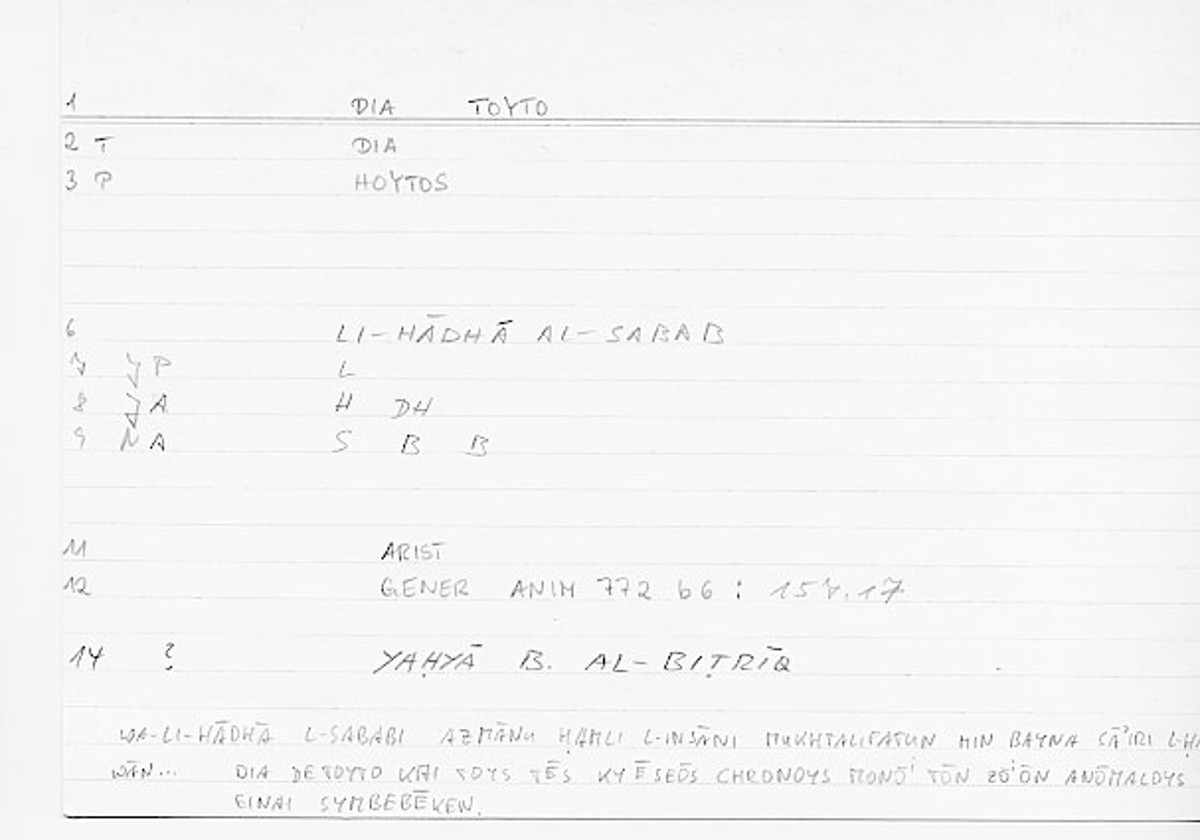 1 DIA TOYTO
2 T DIA
3 P HOYTOS
6 LI-HĀDHĀ AL-SABAB
7 P L
8 A H DH
9 N A S B B
11 ARIST
12 GENER ANIM 772 b6 : 157.17
14 ? YAḤYĀ B. AL-BIṬRĪQ
WA-LI-HĀDHĀ L-SABABI AZMĀNU ḤAMLI L-INSĀNI MUKHTALIFATUN MIN BAYNA SĀʾIRI L-
WĀN... DIA DE TOYTO KAI TOYS TĒS KYĒSEŌS CHRONOYS MONŌͥ TŌN ZŌͥŌN ANŌMALOYS
EINAI SYMBEBĒKEN.